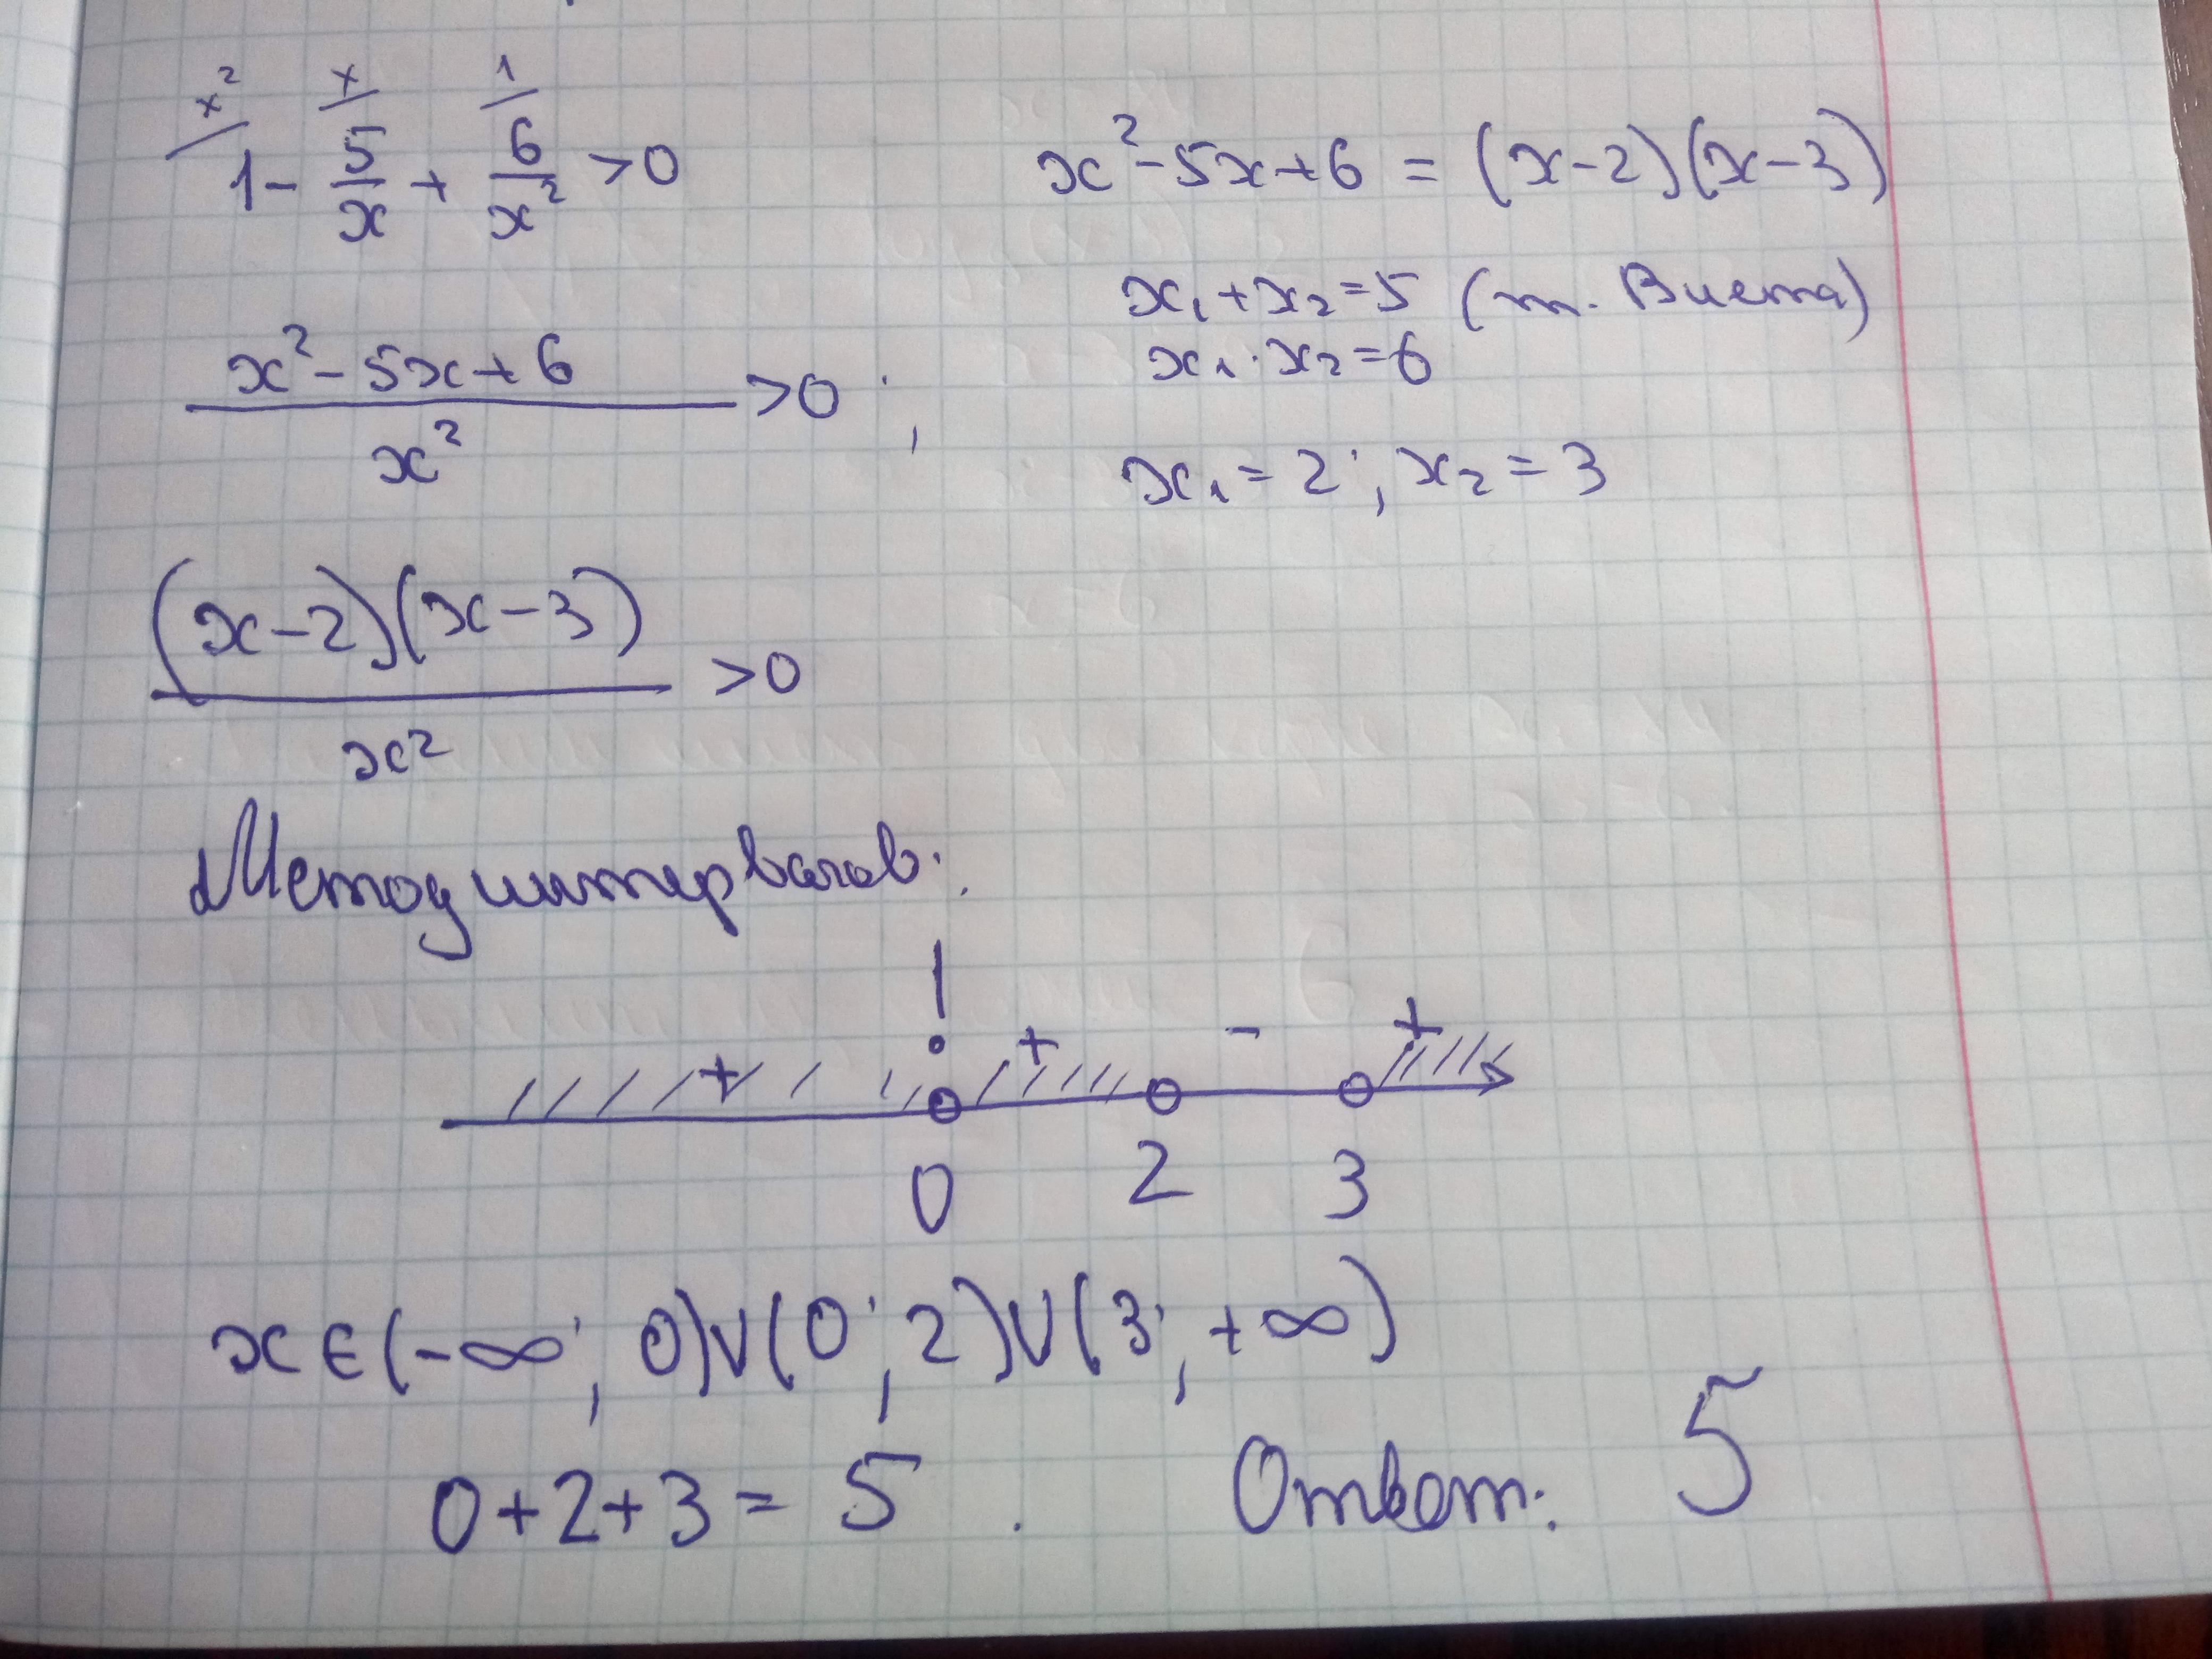 x² x 1
1 - 5/x + 6/x² > 0
x² - 5x + 6 = (x-2)(x-3)
x₁ + x₂ = 5 (т. Виета)
x₁ · x₂ = 6
x₁ = 2; x₂ = 3
(x² - 5x + 6)/x² > 0;
((x-2)(x-3))/x² > 0
Метод интервалов:
!
+ + - +
0 2 3
x ∈ (-∞; 0) ∪ (0; 2) ∪ (3; +∞)
0 + 2 + 3 = 5. Ответ: 5